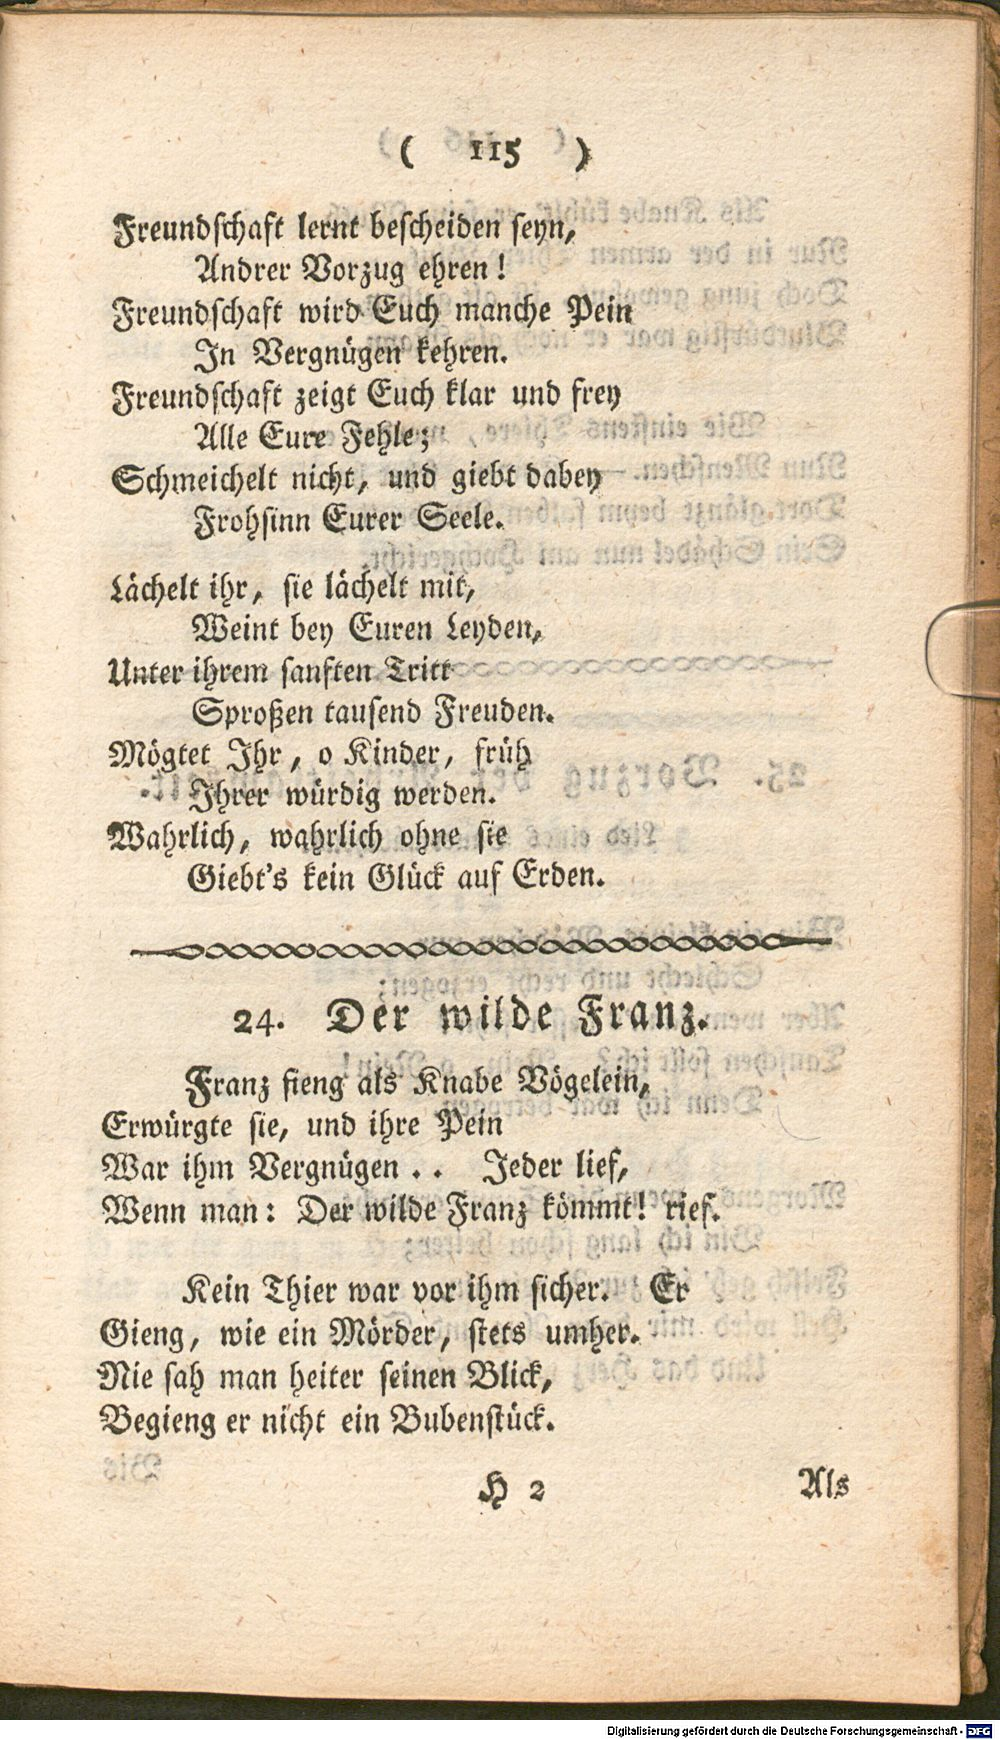 ( 115 )
Freundschaft lernt bescheiden seyn,
Andrer Vorzug ehren!
Freundschaft wird Euch manche Pein
In Vergnügen kehren.
Freundschaft zeigt Euch klar und frey
Alle Eure Fehle;
Schmeichelt nicht, und giebt dabey
Frohsinn Eurer Seele.
Lächelt ihr, sie lächelt mit,
Weint bey Euren Leyden,
Unter ihrem sanften Tritt
Sproßen tausend Freuden.
Mögtet Ihr, o Kinder, früh
Ihrer würdig werden.
Wahrlich, wahrlich ohne sie
Giebt's kein Glück auf Erden.
24. Der wilde Franz.
Franz fieng als Knabe Vögelein,
Erwürgte sie, und ihre Pein
War ihm Vergnügen . . Jeder lief,
Wenn man: Der wilde Franz kömmt! rief.
Kein Thier war vor ihm sicher. Er
Gieng, wie ein Mörder, stets umher.
Nie sah man heiter seinen Blick,
Begieng er nicht ein Bubenstück.
H 2 Als
Digitalisierung gefördert durch die Deutsche Forschungsgemeinschaft - DFG